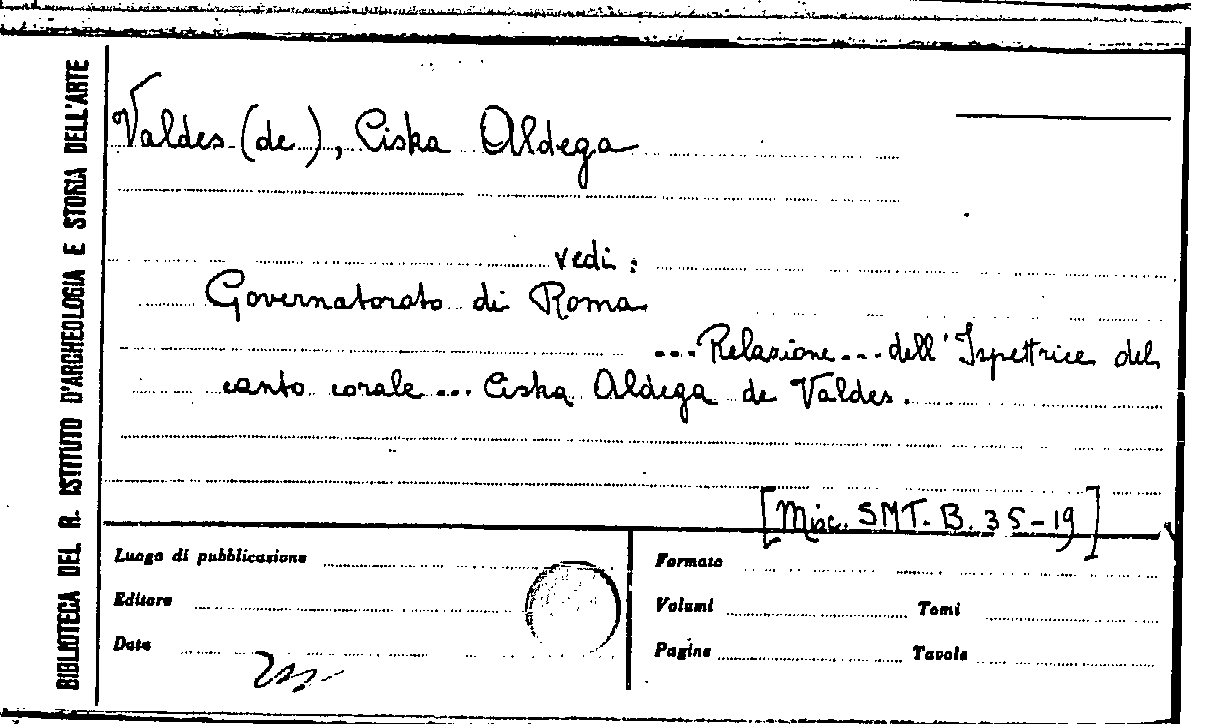 BIBLIOTECA DEL R. ISTITUTO D'ARCHEOLOGIA E STORIA DELL'ARTE
Valdes (de), Ciska Aldega
vedi:
Governatorato di Roma
... Relazione ... dell'Ispettrice del
canto corale ... Ciska Aldega de Valdes.
[Misc. SMT. B. 35-19]
Luogo di pubblicazione
Editore
Data
Formato
Volumi Tomi
Pagine Tavole